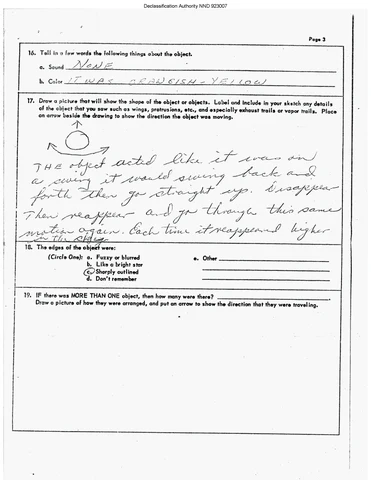 Declassification Authority NND 923007
Page 3
16. Tell in a few words the following things about the object.
a. Sound NONE
b. Color IT WAS ORANGISH-YELLOW
17. Draw a picture that will show the shape of the object or objects. Label and include in your sketch any details
of the object that you saw such as wings, protrusions, etc., and especially exhaust trails or vapor trails. Place
an arrow beside the drawing to show the direction the object was moving.
THE object acted like it was on
a swing it would swing back and
forth then go straight up. Disappear
Then reappear and go through this same
motion again. Each time it reappeared higher
in the sky.
18. The edges of the object were:
(Circle One): a. Fuzzy or blurred
b. Like a bright star
c. Sharply outlined
d. Don't remember
e. Other
19. IF there was MORE THAN ONE object, then how many were there?
Draw a picture of how they were arranged, and put an arrow to show the direction that they were traveling.